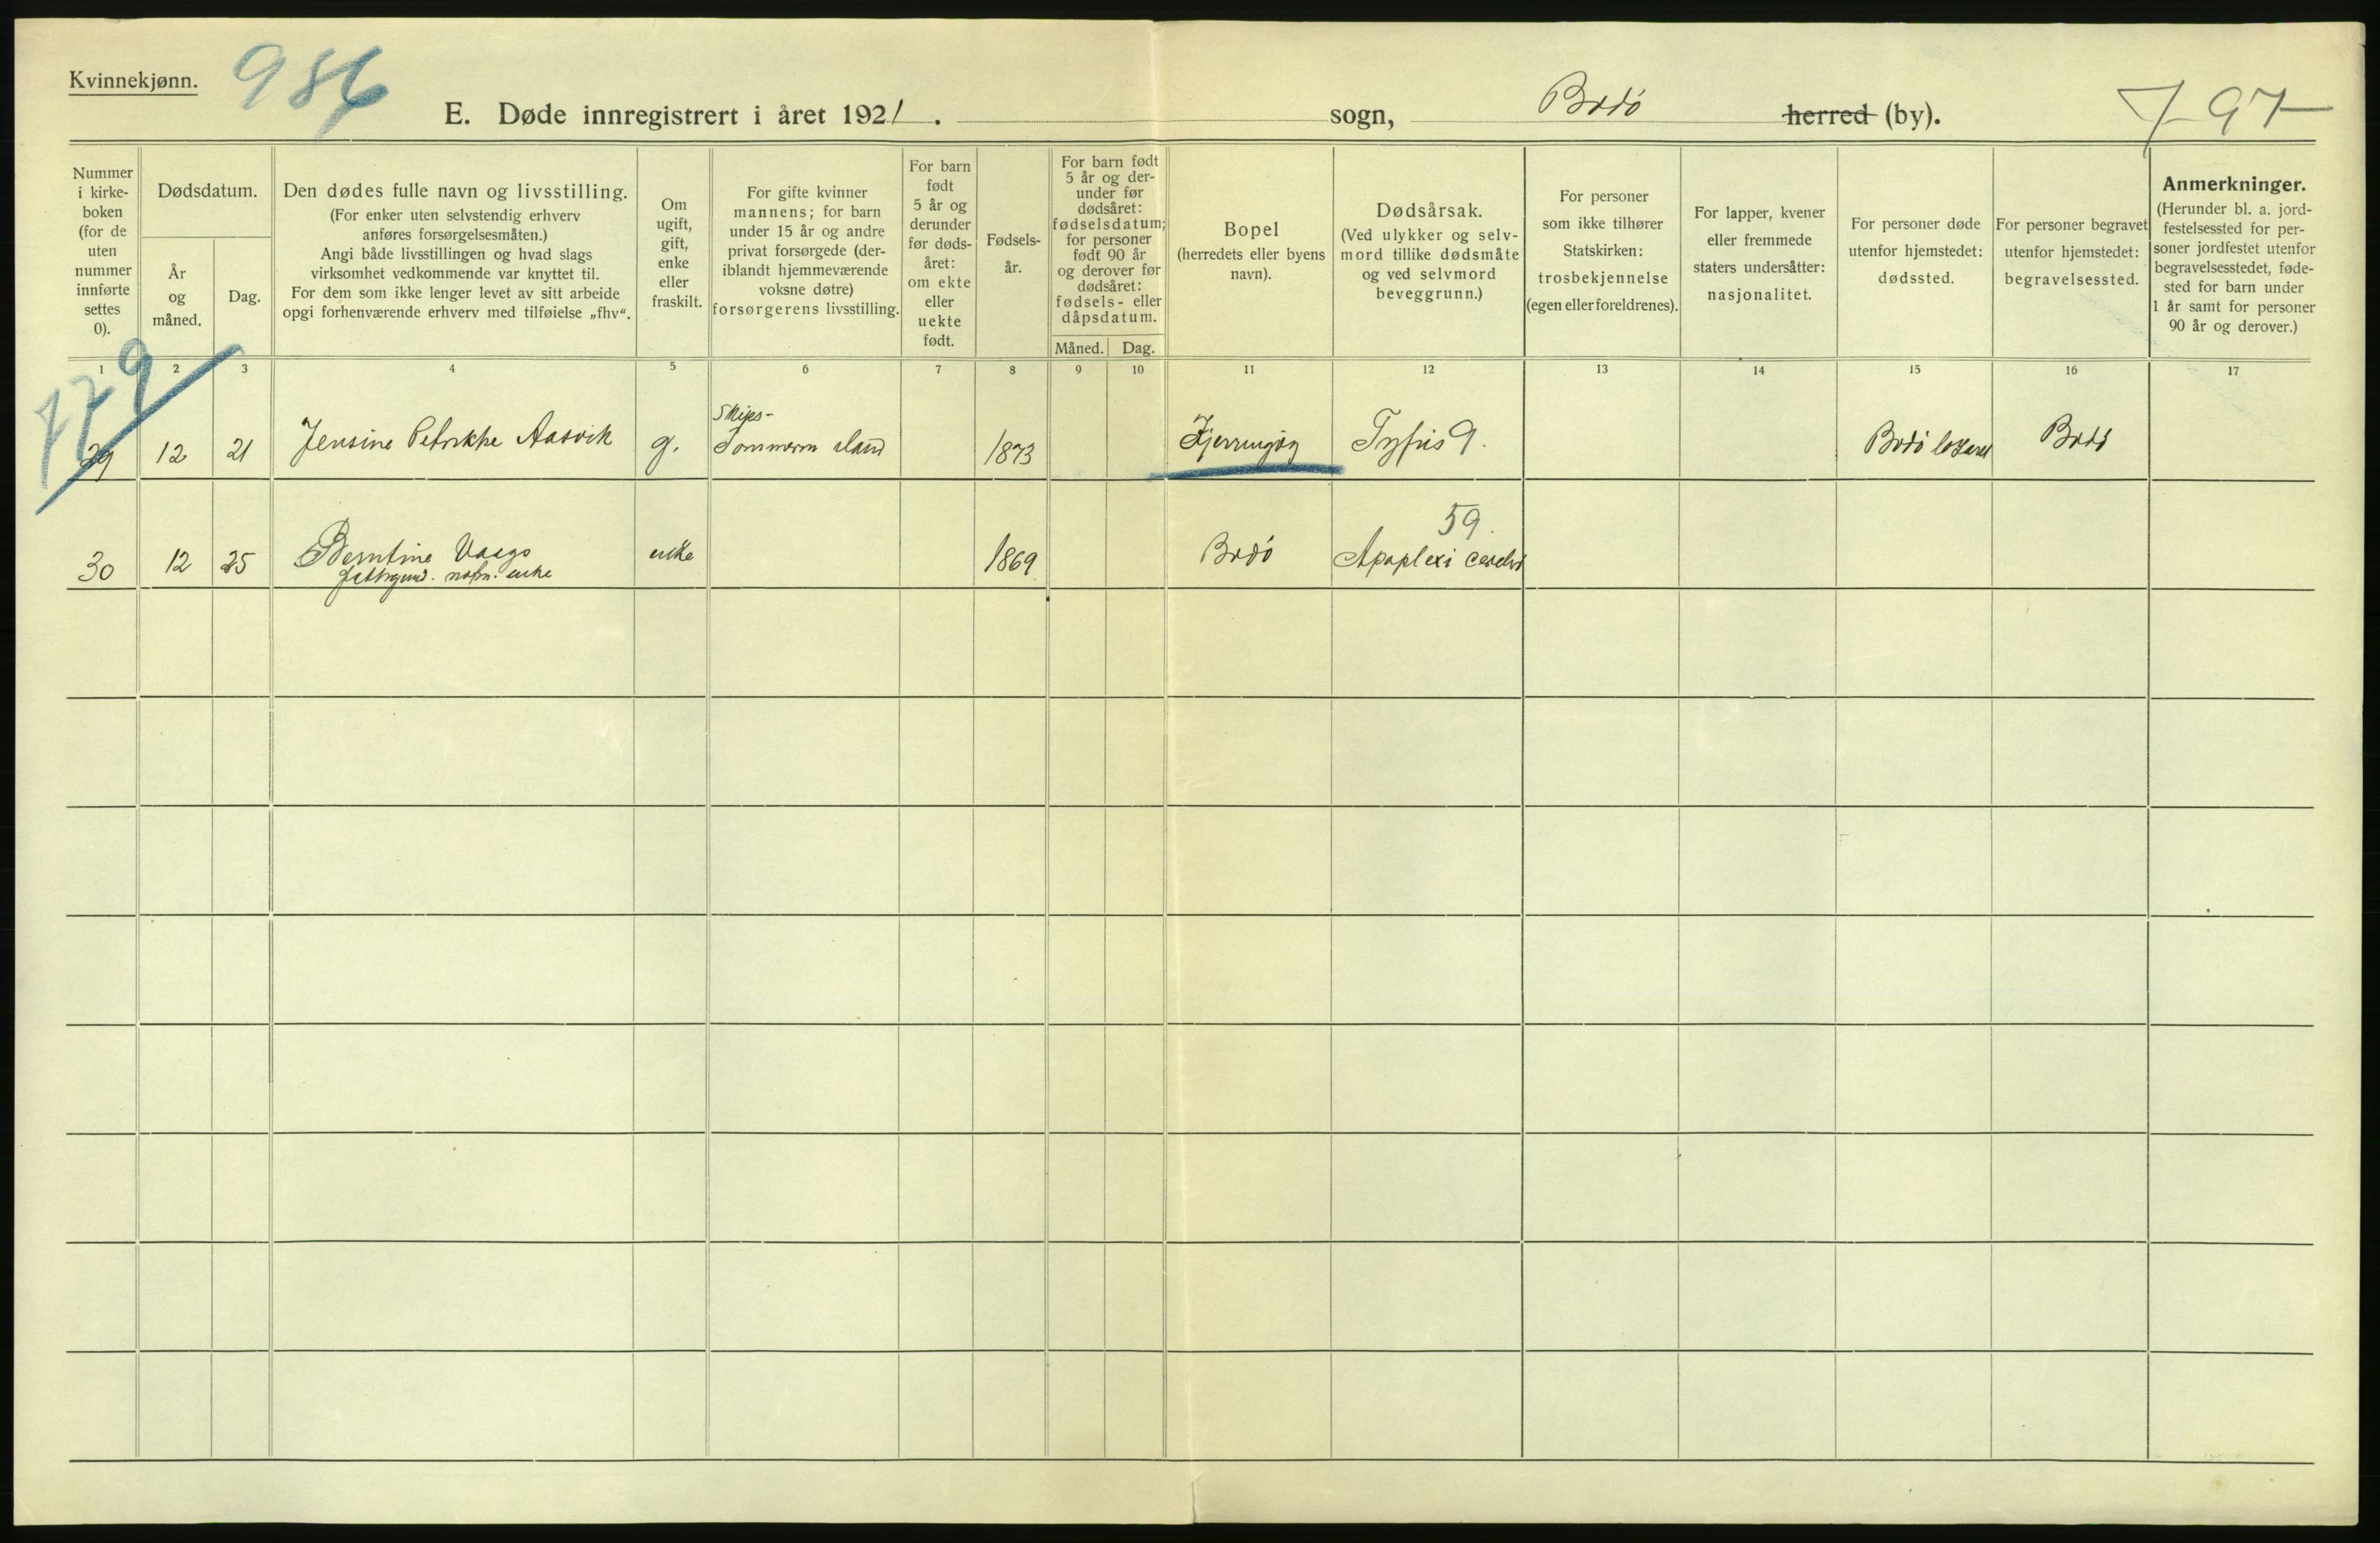 Kvinnekjønn.
986
E. Døde innregistrert i året 1921. sogn, Bodö herred (by).
797
Nummer
i kirke-
boken
(for de
uten
nummer
innførte
settes
0).
Dødsdatum.
År
og
måned.
Dag.
Den dødes fulle navn og livsstilling.
(For enker uten selvstendig erhverv
anføres forsørgelsesmåten.)
Angi både livsstillingen og hvad slags
virksomhet vedkommende var knyttet til.
For dem som ikke lenger levet av sitt arbeide
opgi forhenværende erhverv med tilføielse „fhv“.
Om
ugift,
gift,
enke
eller
fraskilt.
For gifte kvinner
mannens; for barn
under 15 år og andre
privat forsørgede (der-
iblandt hjemmeværende
voksne døtre)
forsørgerens livsstilling.
For barn
født
5 år og
derunder
før døds-
året:
om ekte
eller
uekte
født.
Fødsels-
år.
For barn født
5 år og der-
under før
dødsåret:
fødselsdatum;
for personer
født 90 år
og derover før
dødsåret:
fødsels- eller
dåpsdatum.
Måned. Dag.
Bopel
(herredets eller byens
navn).
Dødsårsak.
(Ved ulykker og selv-
mord tillike dødsmåte
og ved selvmord
beveggrunn.)
For personer
som ikke tilhører
Statskirken:
trosbekjennelse
(egen eller foreldrenes).
For lapper, kvener
eller fremmede
staters undersåtter:
nasjonalitet.
For personer døde
utenfor hjemstedet:
dødssted.
For personer begravet
utenfor hjemstedet:
begravelsessted.
Anmerkninger.
(Herunder bl. a. jord-
festelsessted for per-
soner jordfestet utenfor
begravelsesstedet, føde-
sted for barn under
1 år samt for personer
90 år og derover.)
1 2 3 4 5 6 7 8 9 10 11 12 13 14 15 16 17
779
Skips-
29 12 21 Jensine Petrikke Aasvik g. Tømmerm 1873 Kjerringöy Tyfus 9. Bodö Bodö
59.
30 12 25 Berntine Vaago enke 1869 Bodö Apoplexi cerebri
enke